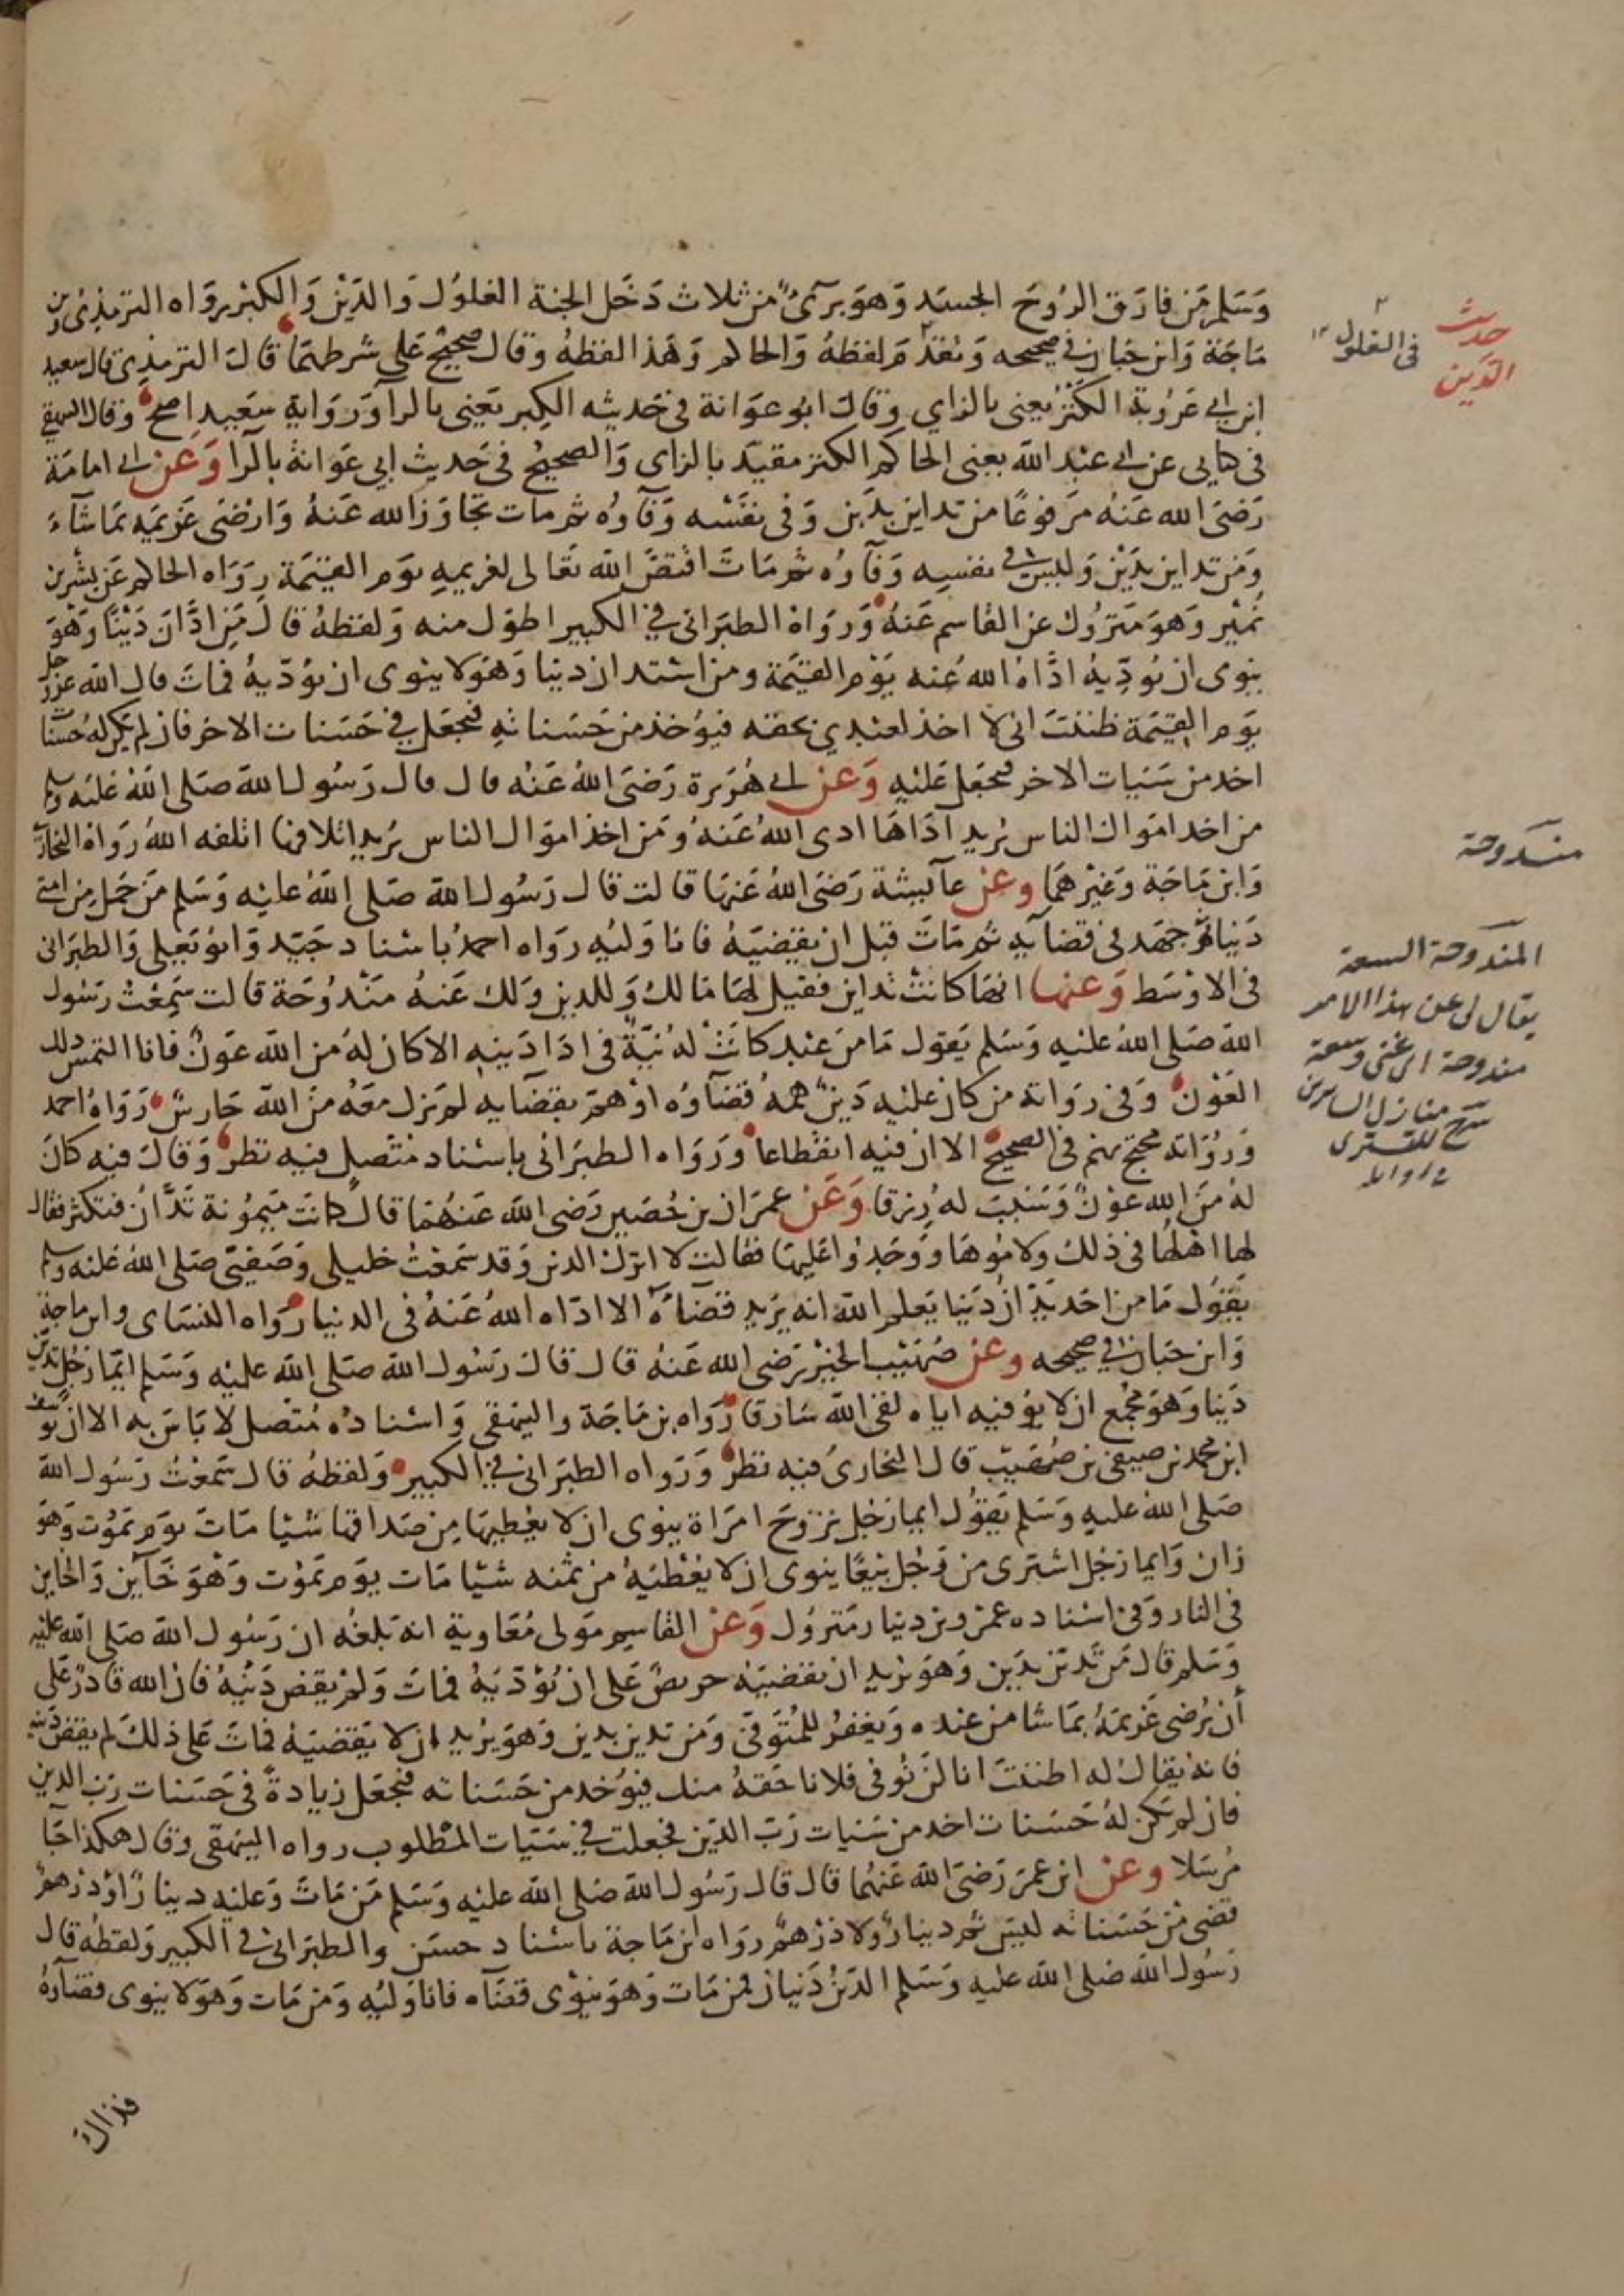 وَسَلم مَن فارَق الروُحَ الجسَد وَهوَ برَئٌ من ثلاث دَخَل الجنة الغلوُل وَالدَيْن وَالكبْر روَاه الترمذِىُ وابن
مَاجَة وَابن حَبان في صحيحه وَتقدم لفظهُ وَالحاكم وَهَذا لفظهُ وقال صَحيْح عَلى شرطهمَا قالَ الترمذِي قال سعيد
ابن ابي عَرُوبة الكَنْزُ يعنى بالزاي وقالَ ابوُ عوَانة في حَديثه الكِبر يَعني بالرآ وَرِوَاية سَعَيد اصح وقال البيهقي
في كتابي عن ابي عبْد الله يعني الحاكم الكنز مقيّد بالزاى وَالصحيْحُ في حَديث ابي عَوانة بالرآ وَعَن ابي امامَة
رَضىَ الله عَنهُ مَرفوعًا من تداين بدَين وَفي نفسْه وَفآوُه ثم مات تجاوَز الله عَنهُ وَارْضى غريمَه بمَا شآءَ
وَمَن تداين بدَيْن وَليسَ في نفسِه وَفآوُه ثم مَاتَ اقتصَّ الله تعَالى لغريمِهِ يوَم القيٰمَة رِوَاه الحاكم عَن بشرْ بن
نُميْر وَهوَ مَترُوك عن القاسم عَنهُ وَرَوَاهُ الطبَراني في الكبير اطوَل منه وَلفظهُ قالَ مَن ادَّانَ دَيْنًا وَهْوَ
ينوى ان يُودّيهُ ادَّاهُ اللهُ عَنه يَوْم القيٰمَة ومن استدان دينا وَهوَ لا ينوى ان يوُدّيهُ فماتَ قال الله عزوجل
يوَم القيٰمَة ظننتَ انى لا اخذ لعبْدِي بحقه فيوُخذ من حَسَناتهِ فيجعَل في حَسَنات الاخر فان لم يكن له حَسنَات
اخد من سَيَات الاخر فيجعَل عَليْهِ وَعن ابي هُرَيرة رَضىَ اللهُ عَنْه قال قال رَسُول الله صَلى اللهُ عَليْه وسلم
من اخد امَوال الناس يُريد آدَاهَا ادى اللهُ عَنهُ وَمَن اخذ اموَال الناس يُريد اتلافها اتلفه اللهُ رَوَاهُ البخاري
وَابن مَاجَة وَغيْرهمَا وعن عآيشة رَضىَ اللهُ عَنهَا قالت قال رَسُول الله صَلى اللهُ عليْه وَسَلم مَن حَمَل مِن امتي
دَينا ثم جَهَد في قضآيه ثم مَاتَ قبْل ان يقضيَهُ فانا وَليُه روَاه احمدُ باسنَاد جَيّد وَابوُ يَعلى وَالطبَراني
في الاوْسَط وَعنها انهَا كانتْ تداين فقيل لهَا مَالكِ وَللدين وَلك عَنهُ مَنْدوُحَة قالت سَمِعْتُ رَسُول
الله صَلى اللهُ عليْهِ وَسَلم يَقول مَا من عَبْد كانَتْ لهُ نيّةٌ في ادَا دَينِه الا كان لهُ من الله عَونٌ فانا التمسُ ذلك
العَوْن وَفي روَاية من كان عليْه دَينٌ هَمهُ قضآوُه اوْ هَمّ بقضآيه لم يزل معَهُ من الله حَارسٌ رَوَاهُ احمد
وَروُاته محتج بهم في الصحيْح الا ان فيْه انقطاعا وَرَوَاه الطبَراني باسْناد متّصل فيْه نظرٌ وَقالَ فيْه كانَ
لهُ منَ الله عوْنٌ وَسَبّبَ لهُ رِزقا وَعَن عمرَان بن حُصَين رَضى الله عَنهُمَا قالَ كانتَ مَيموُنة تدَّانُ فتكثر فقال
لها اهْلهَا في ذلك ولامُوهَا وَوَجَدوُا عَليهَا فقالت لا اترك الدين وَقد سَمعْتُ خليلي وَصَفِيّي صَلى اللهُ عليْه وسلم
يَقوُل مَا من احَد يَدَّانُ دَيْنا يَعلم الله انه يرَيد قضآهُ الا ادّاه اللهُ عَنهُ في الدنيا رَوَاه النسَاي وابن ماجة
وَابن حَبان في صحيحه وعن صُهَيْب الخيْر رَضى الله عَنهُ قال قالَ رَسُول الله صَلى الله عليْه وَسَلم ايّما رَجُل تدَيّن
دَينا وَهوَ مُجْمع ان لا يوُفيْه اياه لقي الله سَارقا رَوَاه بن مَاجَة والبيهقي وَاسْناده مُتْصل لا بَاسَ به الا ان يوُسُف
ابن محمد بن صيفي بن صُهَيبْ قال البخارىُ فيْه نظرٌ وَرَوَاه الطبَراني في الكبير وَلفظهُ قال سَمعْتُ رَسُول الله
صَلى اللهُ عليْهِ وَسَلم يقوُل ايما رَجُل تزَوج امرَاة ينوى ان لا يعْطيهَا مِن صَداقهَا شَيْيا مَاتَ يوَم يمَوُت وَهَوَ
زان وَايما رَجُل اشترى من رَجُل بيَعًا ينوى ان لا يعْطيَهُ من ثمنه شَيْيا مَات يوَم يَموْت وَهْوَ خَآين وَالخاين
في النار وَفي اسْناده عمَرْو بن دينار مترَوُل وَعن القاسِم مَولى مُعَاوية انه بَلغهُ ان رَسُول الله صَلى الله عليه
وَسَلم قال مَن تَدَيّن بدَين وَهوَ يُريد ان يقضيَه حريصٌ عَلى ان يُوْدّيَهُ فماتَ وَلم يقض دَيْنهُ فان الله قادرٌ عَلى
أن يُرضى غَريمَهُ بمَا شا من عنده وَيغفرُ للمُتوَفى وَمَن تدين بدين وَهوَ يُريد ان لا يقضيَهُ فماتَ عَلى ذلكَ لم يقض دينه
فانه يقالُ لهُ اظننتَ انا لن نوُفى فلانا حَقهُ منك فيوُخد من حَسَناته فيجعَل زيادةً في حَسَنات رَبّ الدين
فان لم يَكن لهُ حَسَنات اخد من سَيات رَبّ الدّين فجعلت في سَيَات المطلوب رواه البيهقي وقال هكذا جَآ
مُرسَلا وعن ابن عمرَ رَضىَ الله عَنهُما قال قال رَسُول الله صَلى الله عليْه وَسَلم مَن مَاتَ وَعليْه دينارٌ اوْ درْهمٌ
قضى من حَسَناته ليسَ ثم دينارٌ ولا درْهمٌ روَاه ابن مَاجة باسْناد حسَن والطبرَاني في الكبير وَلفظهُ قال
رَسُول الله صَلى الله عليه وَسَلم الدَيْنُ دَينان فمن مَات وَهوَ ينوْى قضآه فانا وَليُه وَمَن مَات وَهوَ لا ينوى قضآءهُ
فذاك
حديث
الدين
في الغلول ١٢
مندوحة
المندوحة السعة
يقال لى عن هذا الامر
مندوحة اى غنى وسعة
شرح منازل السايرين
للتسترى